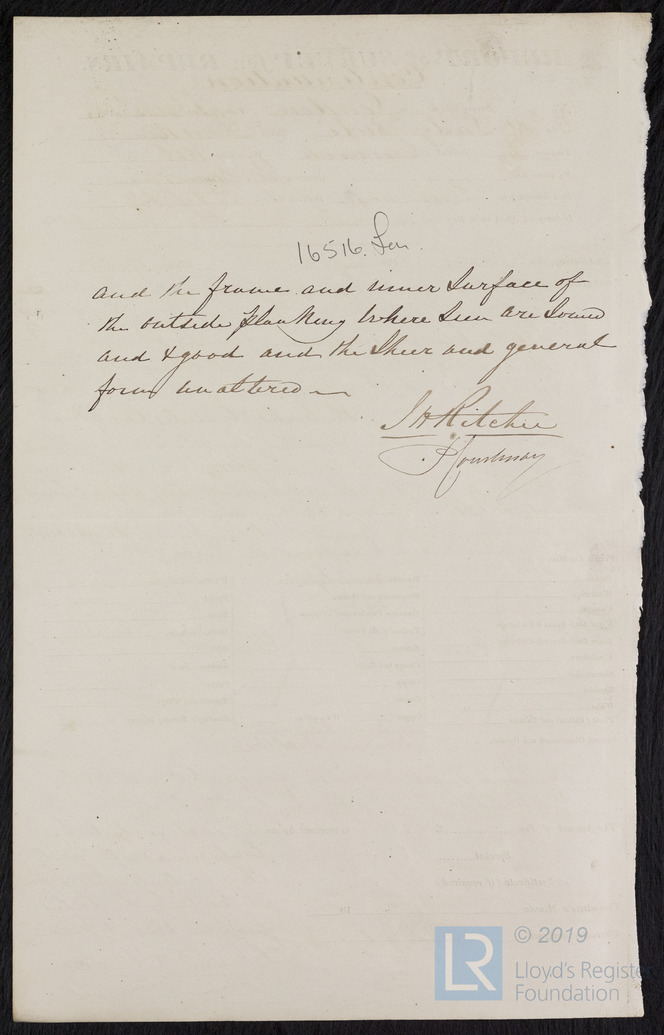 16516. Lon.
and the frame and inner Surface of
the outside planking where Seen are Sound
and & good and the Sheer and general
form unaltered
J H Ritchie
Courtenay
LR
© 2019
Lloyd's Register
Foundation